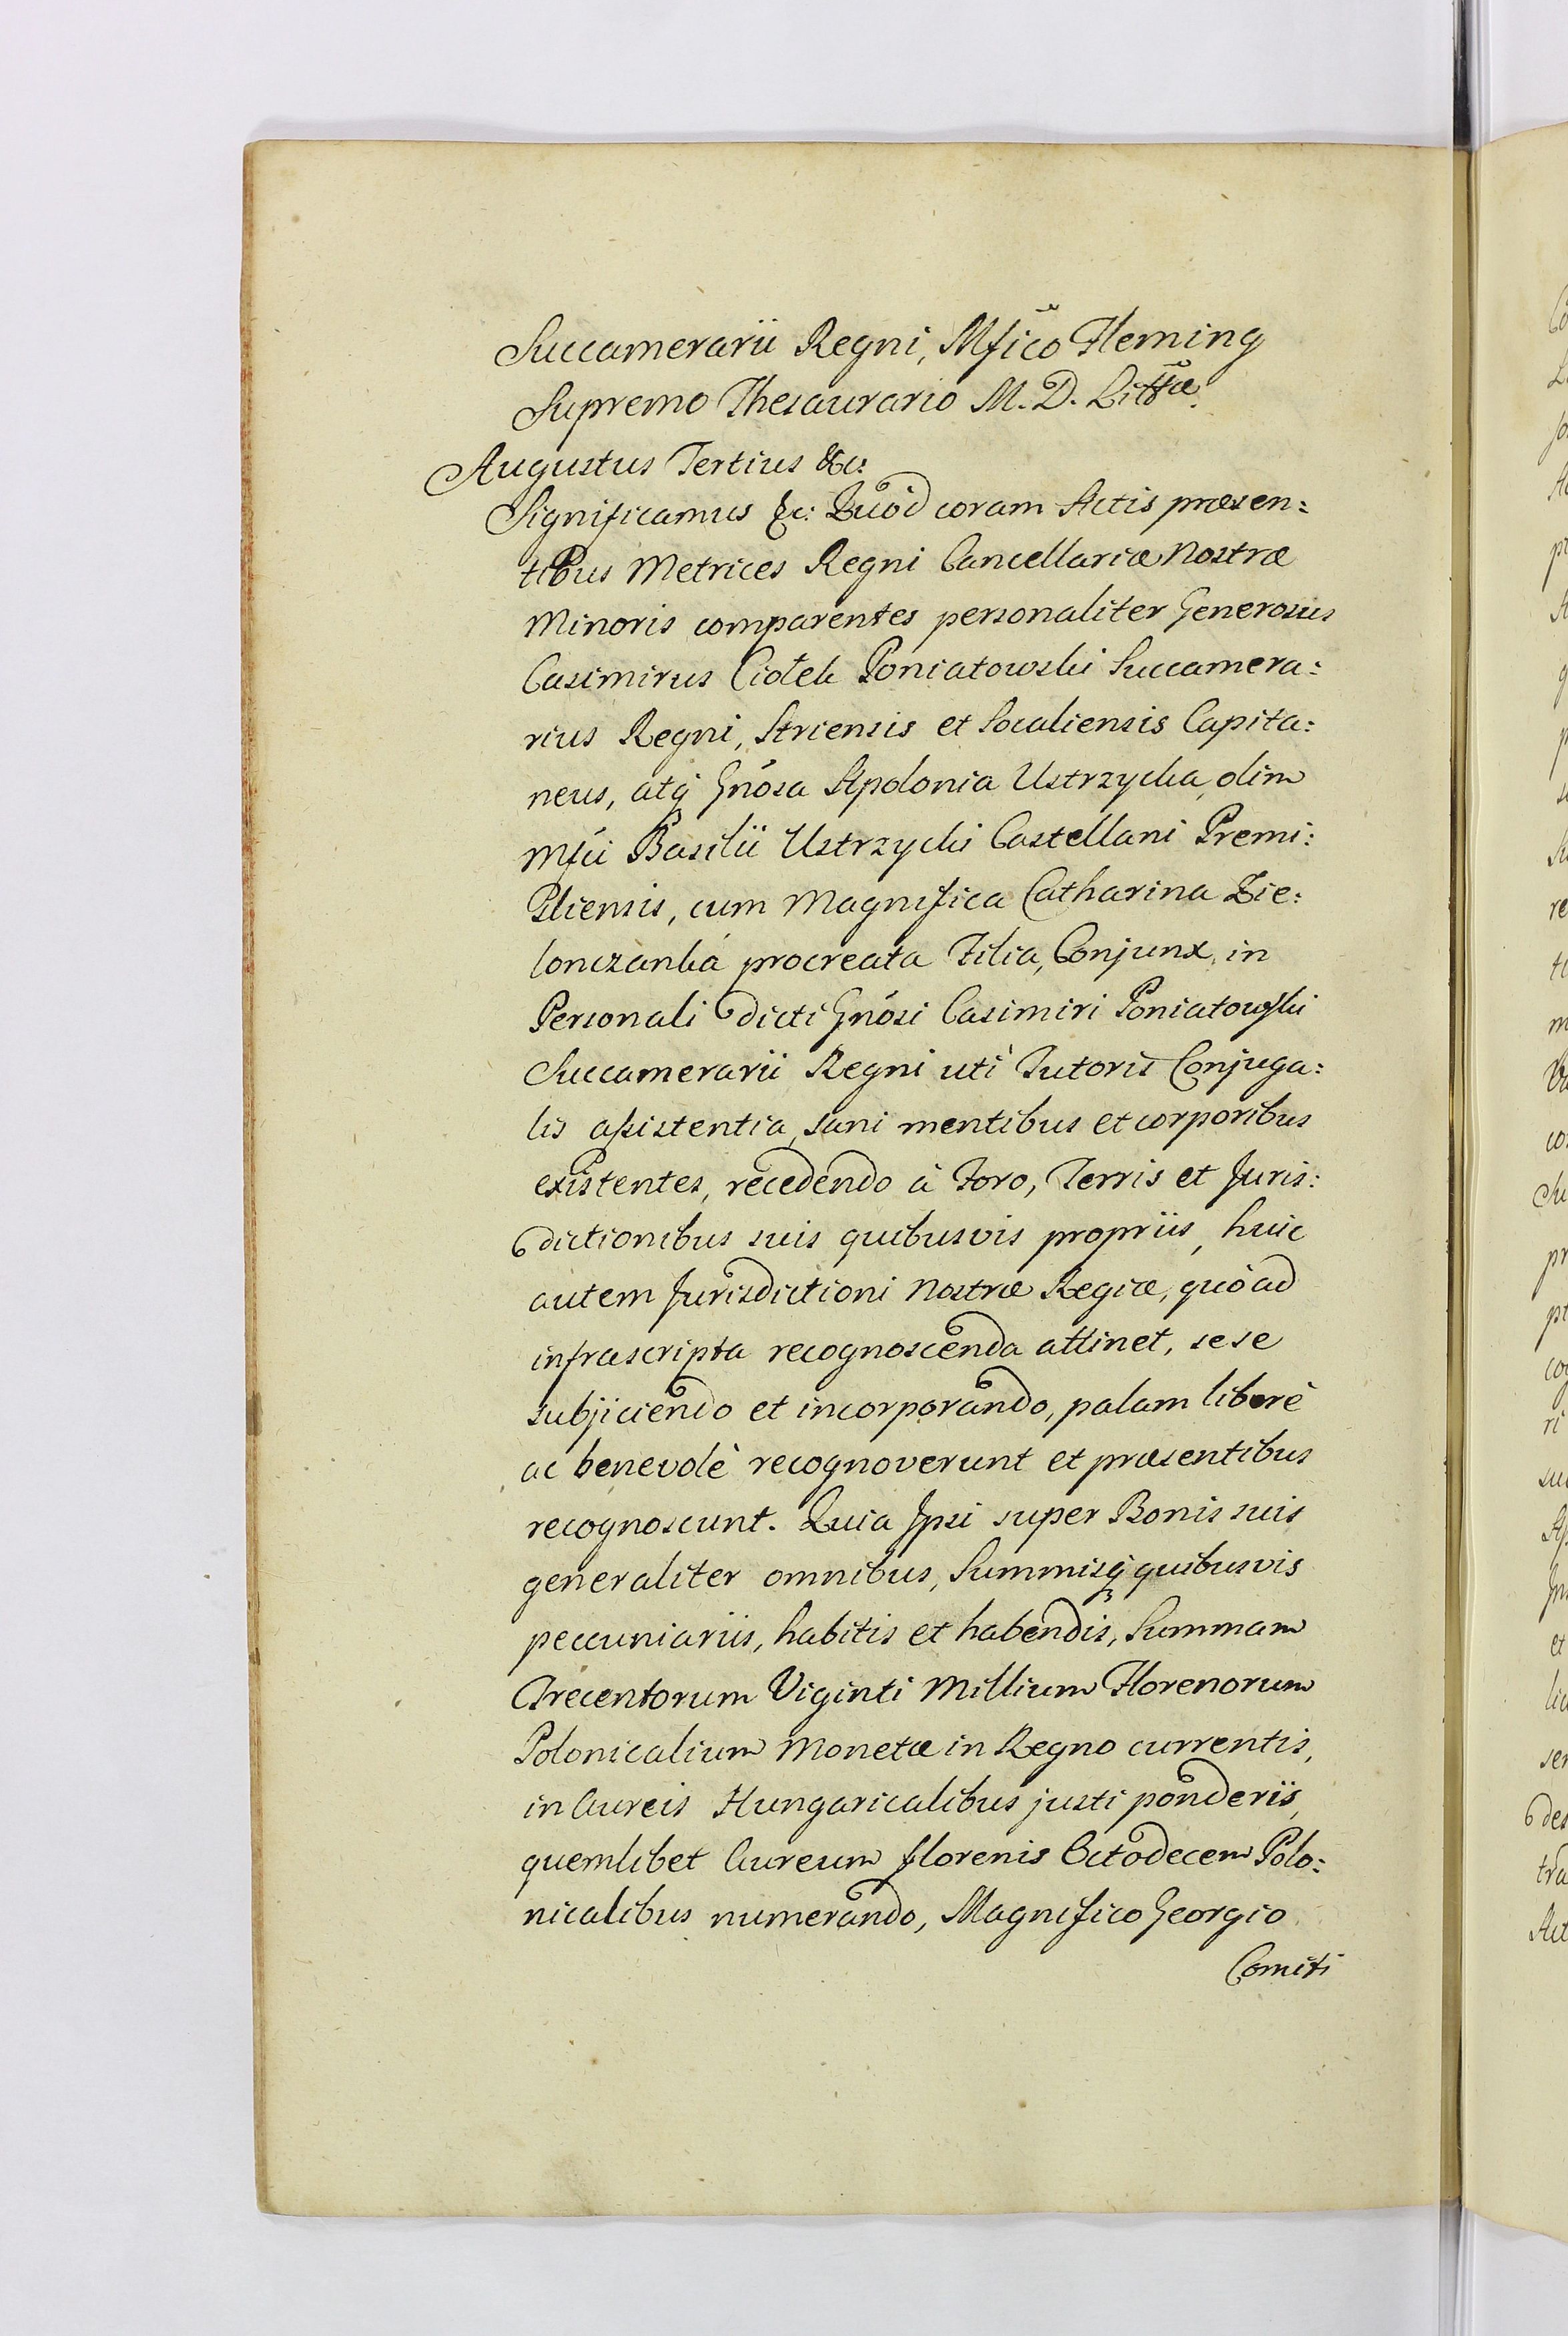 Succamerarii Regni, Mfico Fleming
Supremo Thesaurario M. D. Littæ.
Augustus Tertius &c:
Significamus &c: Quòd coram Actis præsen:
tibus Metrices Regni Cancellariæ Nostræ
Minoris comparentes personaliter Generosus
Casimirus Ciołek Poniatowski Succamera:
rius Regni, Striensis et Socaliensis Capita:
neus, atq́ Gnósa Apolonia Ustrzycka, olim
Mfci Basilii Ustrzycki Castellani Premi:
sliensis, cum Magnifica Catharina Zie:
lonczanká procreata Filia, Conjunx, in
Personali dicti Gnósi Casimiri Poniatowski
Succamerarii Regni uti Tutoris Conjuga:
lis assistentia, sani mentibus et corporibus
existentes, recedendo à Foro, Terris et Juris:
dictionibus suis quibusvis propriis, huic
autem Jurisdictioni Nostræ Regiæ, quòad
infrascripta recognoscenda attinet, sese
subjiciendo et incorporando, palam liberè
ac benevolè recognoverunt et præsentibus
recognoscunt. Quia Ipsi super Bonis suis
generaliter omnibus, Summisq́ quibusvis
peccuniariis, habitis et habendis, Summam
Trecentorum Viginti Millium Florenorum
Polonicalium Monetæ in Regno currentis,
in Aureis Hungaricalibus justi ponderiis,
quemlibet Aureum florenis Octodecem Polo:
nicalibus numerando, Magnifico Georgio
Comiti